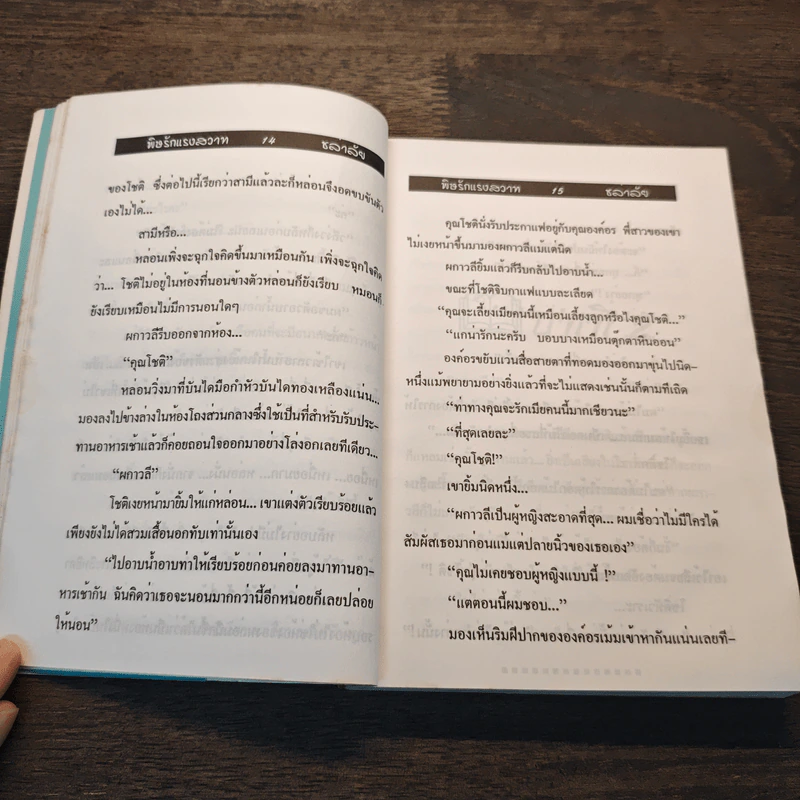 พิษรักแรงสวาท 14 ชลาลัย
ของโชติ ซึ่งต่อไปนี้เรียกว่าสามีแล้วละก็หล่อนจึงอดขบขันตัว
เองไม่ได้...
สามีหรือ...
หล่อนเพิ่งจะฉุกใจคิดขึ้นมาเหมือนกัน เพิ่งจะฉุกใจคิด
ว่า... โชติไม่อยู่ในห้องที่นอนข้างตัวหล่อนก็ยังเรียบ หมอนก็
ยังเรียบเหมือนไม่มีการนอนใดๆ
ผกาวลีรีบออกจากห้อง...
“คุณโชติ”
หล่อนวิ่งมาที่บันไดมือกำหัวบันไดทองเหลืองแน่น...
มองลงไปข้างล่างในห้องโถงส่วนกลางซึ่งใช้เป็นที่สำหรับรับประ-
ทานอาหารเช้าแล้วก็ค่อยถอนใจออกมาอย่างโล่งอกเลยทีเดียว...
“ผกาวลี”
โชติเงยหน้ามายิ้มให้แก่หล่อน... เขาแต่งตัวเรียบร้อยแล้ว
เพียงยังไม่ได้สวมเสื้อนอกทับเท่านั้นเอง
“ไปอาบน้ำอาบท่าให้เรียบร้อยก่อนค่อยลงมาทานอา-
หารเช้ากัน ฉันคิดว่าเธอจะนอนมากกว่านี้อีกหน่อยก็เลยปล่อย
ให้นอน”
พิษรักแรงสวาท 15 ชลาลัย
คุณโชตินั่งรับประกาแฟอยู่กับคุณองค์อร พี่สาวของเขา
ไม่เงยหน้าขึ้นมามองผกาวลีแม้แต่นิด
ผกาวลียิ้มแล้วก็รีบกลับไปอาบน้ำ...
ขณะที่โชติจิบกาแฟแบบละเลียด
“คุณจะเลี้ยงเมียคนนี้เหมือนเลี้ยงลูกหรือไงคุณโชติ...”
“แกน่ารักน่ะครับ บอบบางเหมือนตุ๊กตาหินอ่อน”
องค์อรขยับแว่นสื่อสายตาที่ทอดมองออกมาขุ่นไปนิด-
หนึ่งแม้พยายามอย่างยิ่งแล้วที่จะไม่แสดงเช่นนั้นก็ตามทีเถิด
“ท่าทางคุณจะรักเมียคนนี้มากเชียวนะ”
“ที่สุดเลยละ”
“คุณโชติ!”
เขายิ้มนิดหนึ่ง...
“ผกาวลีเป็นผู้หญิงสะอาดที่สุด... ผมเชื่อว่าไม่มีใครได้
สัมผัสเธอมาก่อนแม้แต่ปลายนิ้วของเธอเอง”
“คุณไม่เคยชอบผู้หญิงแบบนี้ !”
“แต่ตอนนี้ผมชอบ...”
มองเห็นริมฝีปากขององค์อรเม้มเข้าหากันแน่นเลยที-